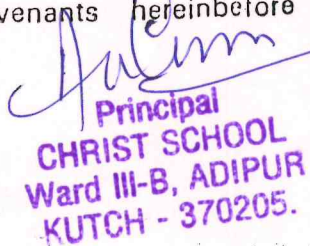 venants hereinbefore
Principal
CHRIST SCHOOL
Ward III-B, ADIPUR
KUTCH - 370205.